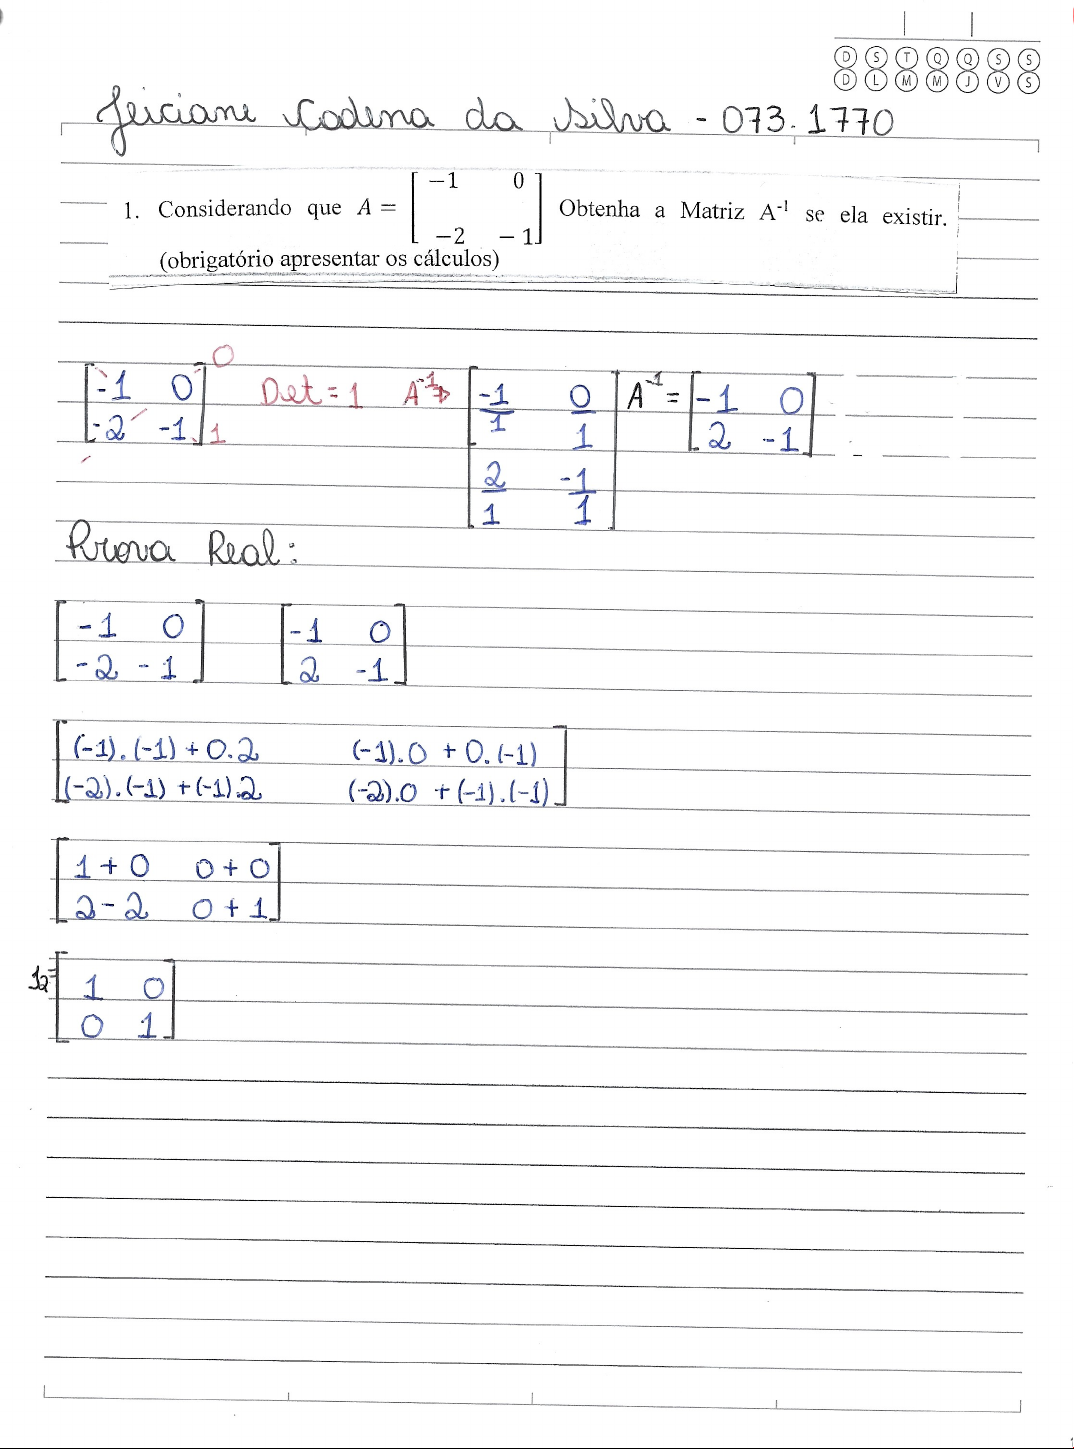 D S T Q Q S S
D L M M J V S
Jeiciane Cadena da Silva - 073.1770
1. Considerando que A = [ -1 0 ] Obtenha a Matriz A⁻¹ se ela existir.
[ -2 -1 ]
(obrigatório apresentar os cálculos)
[ -1 0 ] 0 Det = 1 A⁻¹ → [ -1/1 0/1 ] A⁻¹ = [ -1 0 ]
[ -2 -1 ] 1 [ 2/1 -1/1 ] [ 2 -1 ]
Prova Real:
[ -1 0 ] [ -1 0 ]
[ -2 -1 ] [ 2 -1 ]
[ (-1).(-1) + 0.2 (-1).0 + 0.(-1) ]
[ (-2).(-1) + (-1).2 (-2).0 + (-1).(-1) ]
[ 1 + 0 0 + 0 ]
[ 2 - 2 0 + 1 ]
I2 = [ 1 0 ]
[ 0 1 ]